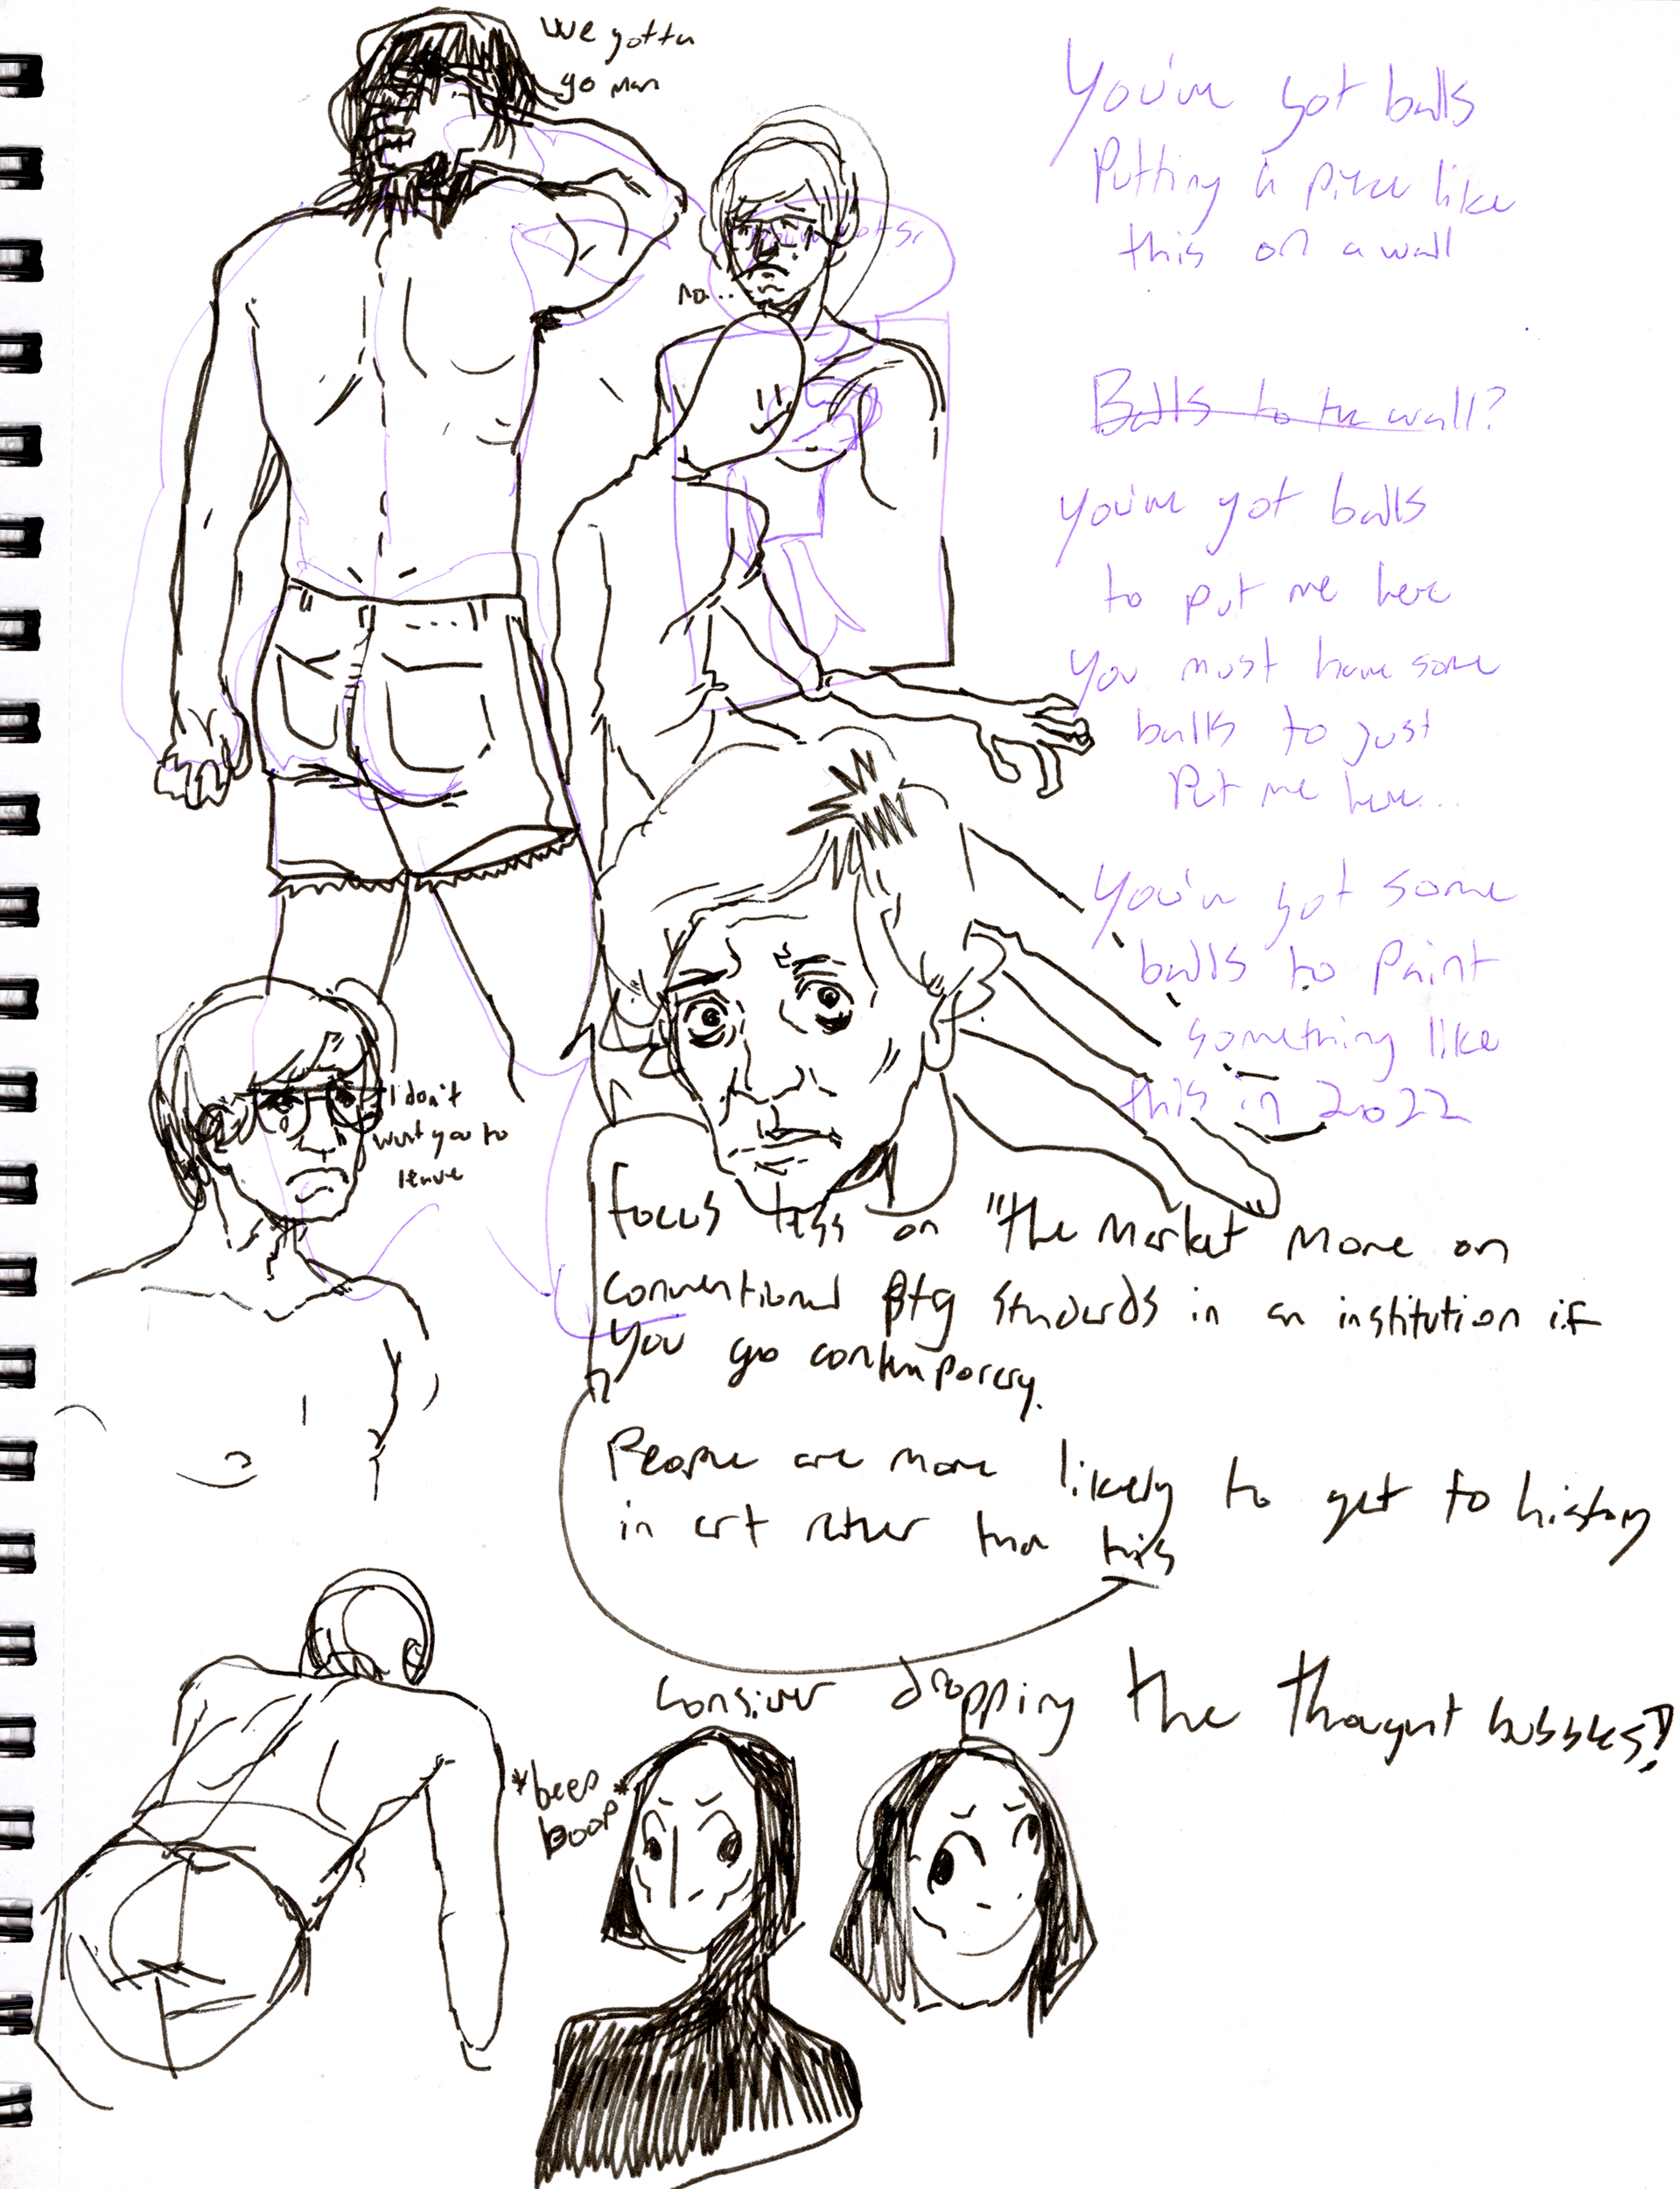 We gotta
go man
no...
You've got balls
Putting a piece like
this on a wall
Balls to the wall?
You've got balls
to put me here
You must have some
balls to just
Put me here...
You've got some
balls to paint
something like
this in 2022
I don't
want you to
leave
Focus less on "the Market" More on
conventional ptg standards in an institution if
you go contemporary.
People are more likely to get to history
in art rather than this
Consider dropping the thought bubbles?!
*beep
boop*